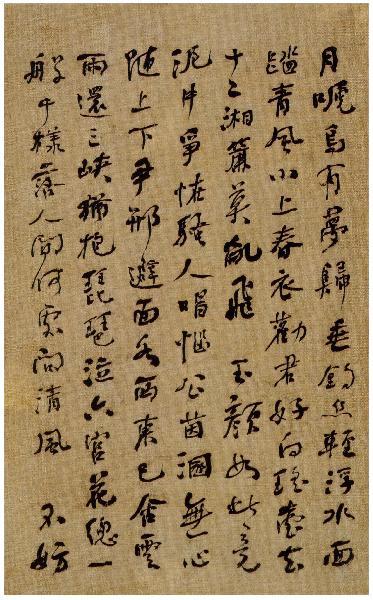 月烏有夢歸垂釣絲輕浮水面
踏青風小上春衣勸君好向瑤臺去
十二湘簾莫亂飛 玉顏如此竟
泥中爭怪騷人唱惱公茵溷無心
隨上下尹邢避面各西東已含雲
雨還三峽猶抱琵琶泣六宮花總一
般千樣落人間何處問清風 不妨